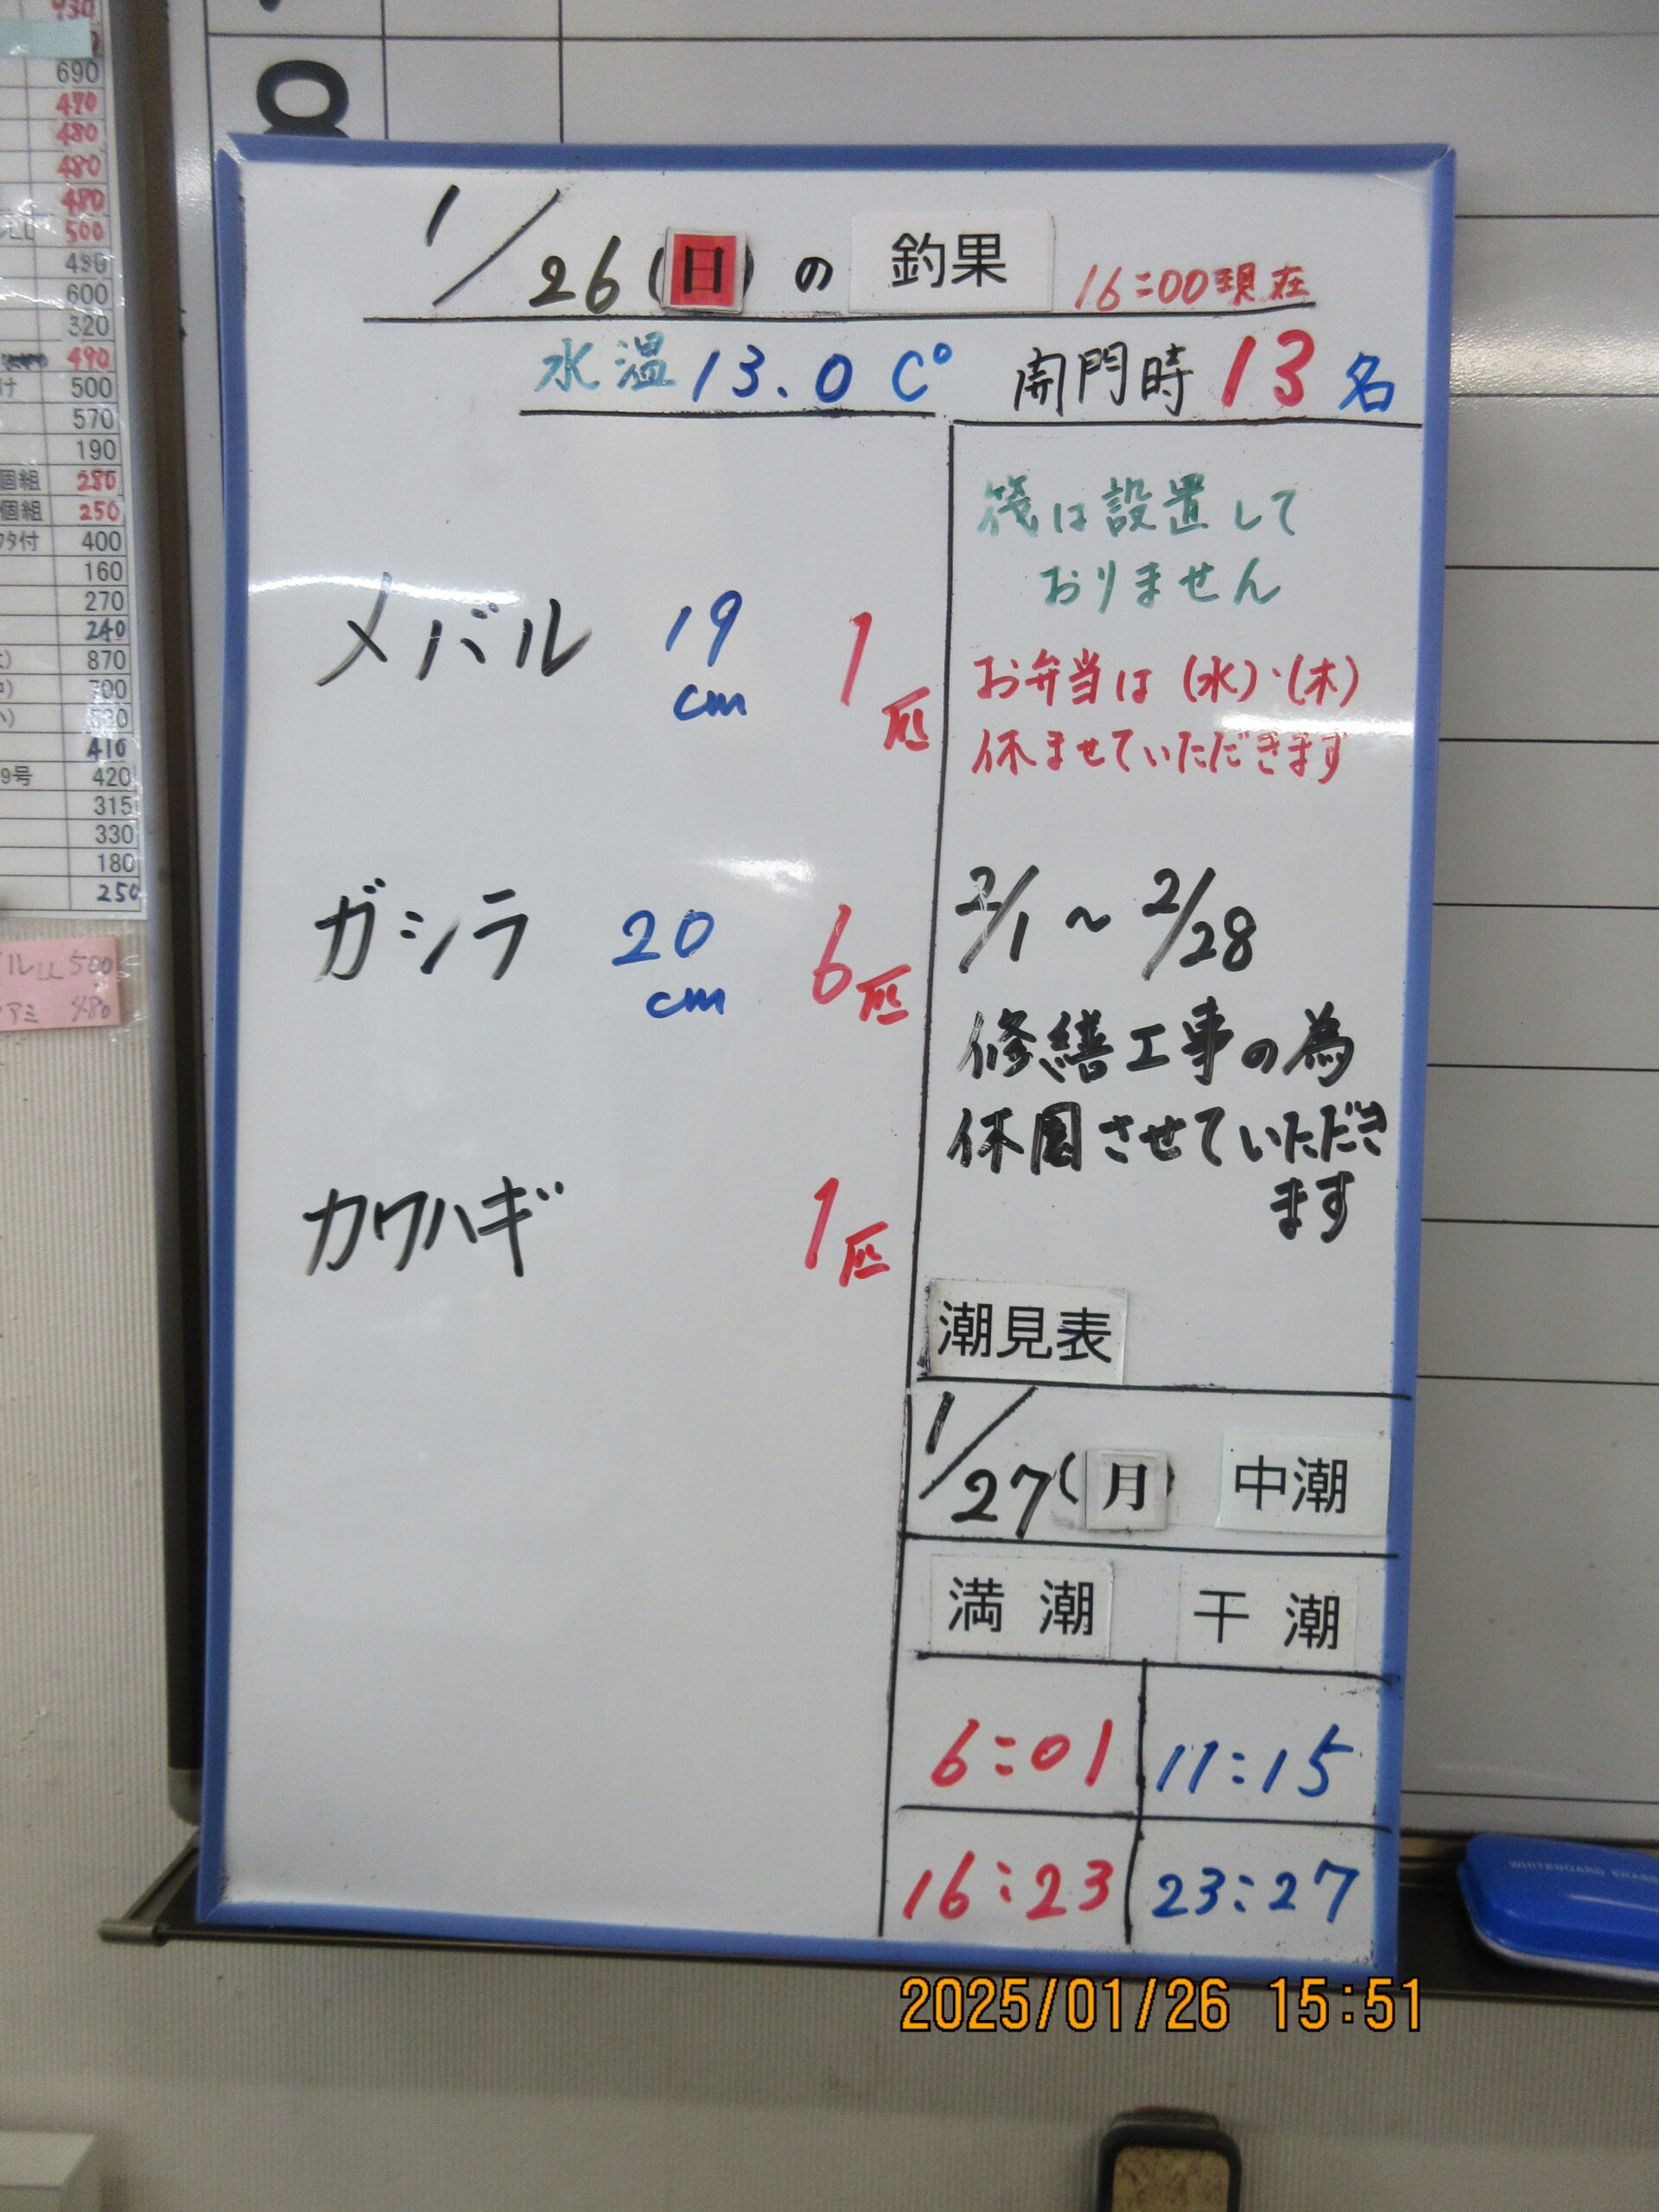 930
690
470
480
480
480
500
490
600
320
490
500
570
190
個組 280
個組 250
400
160
270
240
870
700
410
9号 420
315
330
180
250
ルLL 500
アミ 480
1/26(日)の釣果 16:00現在
水温 13.0 C° 開門時 13名
筏は設置して
おりません
お弁当は(水)・(木)
休ませていただきます
メバル 19cm 1匹
ガシラ 20cm 6匹
カワハギ 1匹
2/1~2/28
修繕工事の為
休園させていただき
ます
潮見表
1/27(月) 中潮
満潮 干潮
6:01 11:15
16:23 23:27
WHITEBOARD ERASER
2025/01/26 15:51